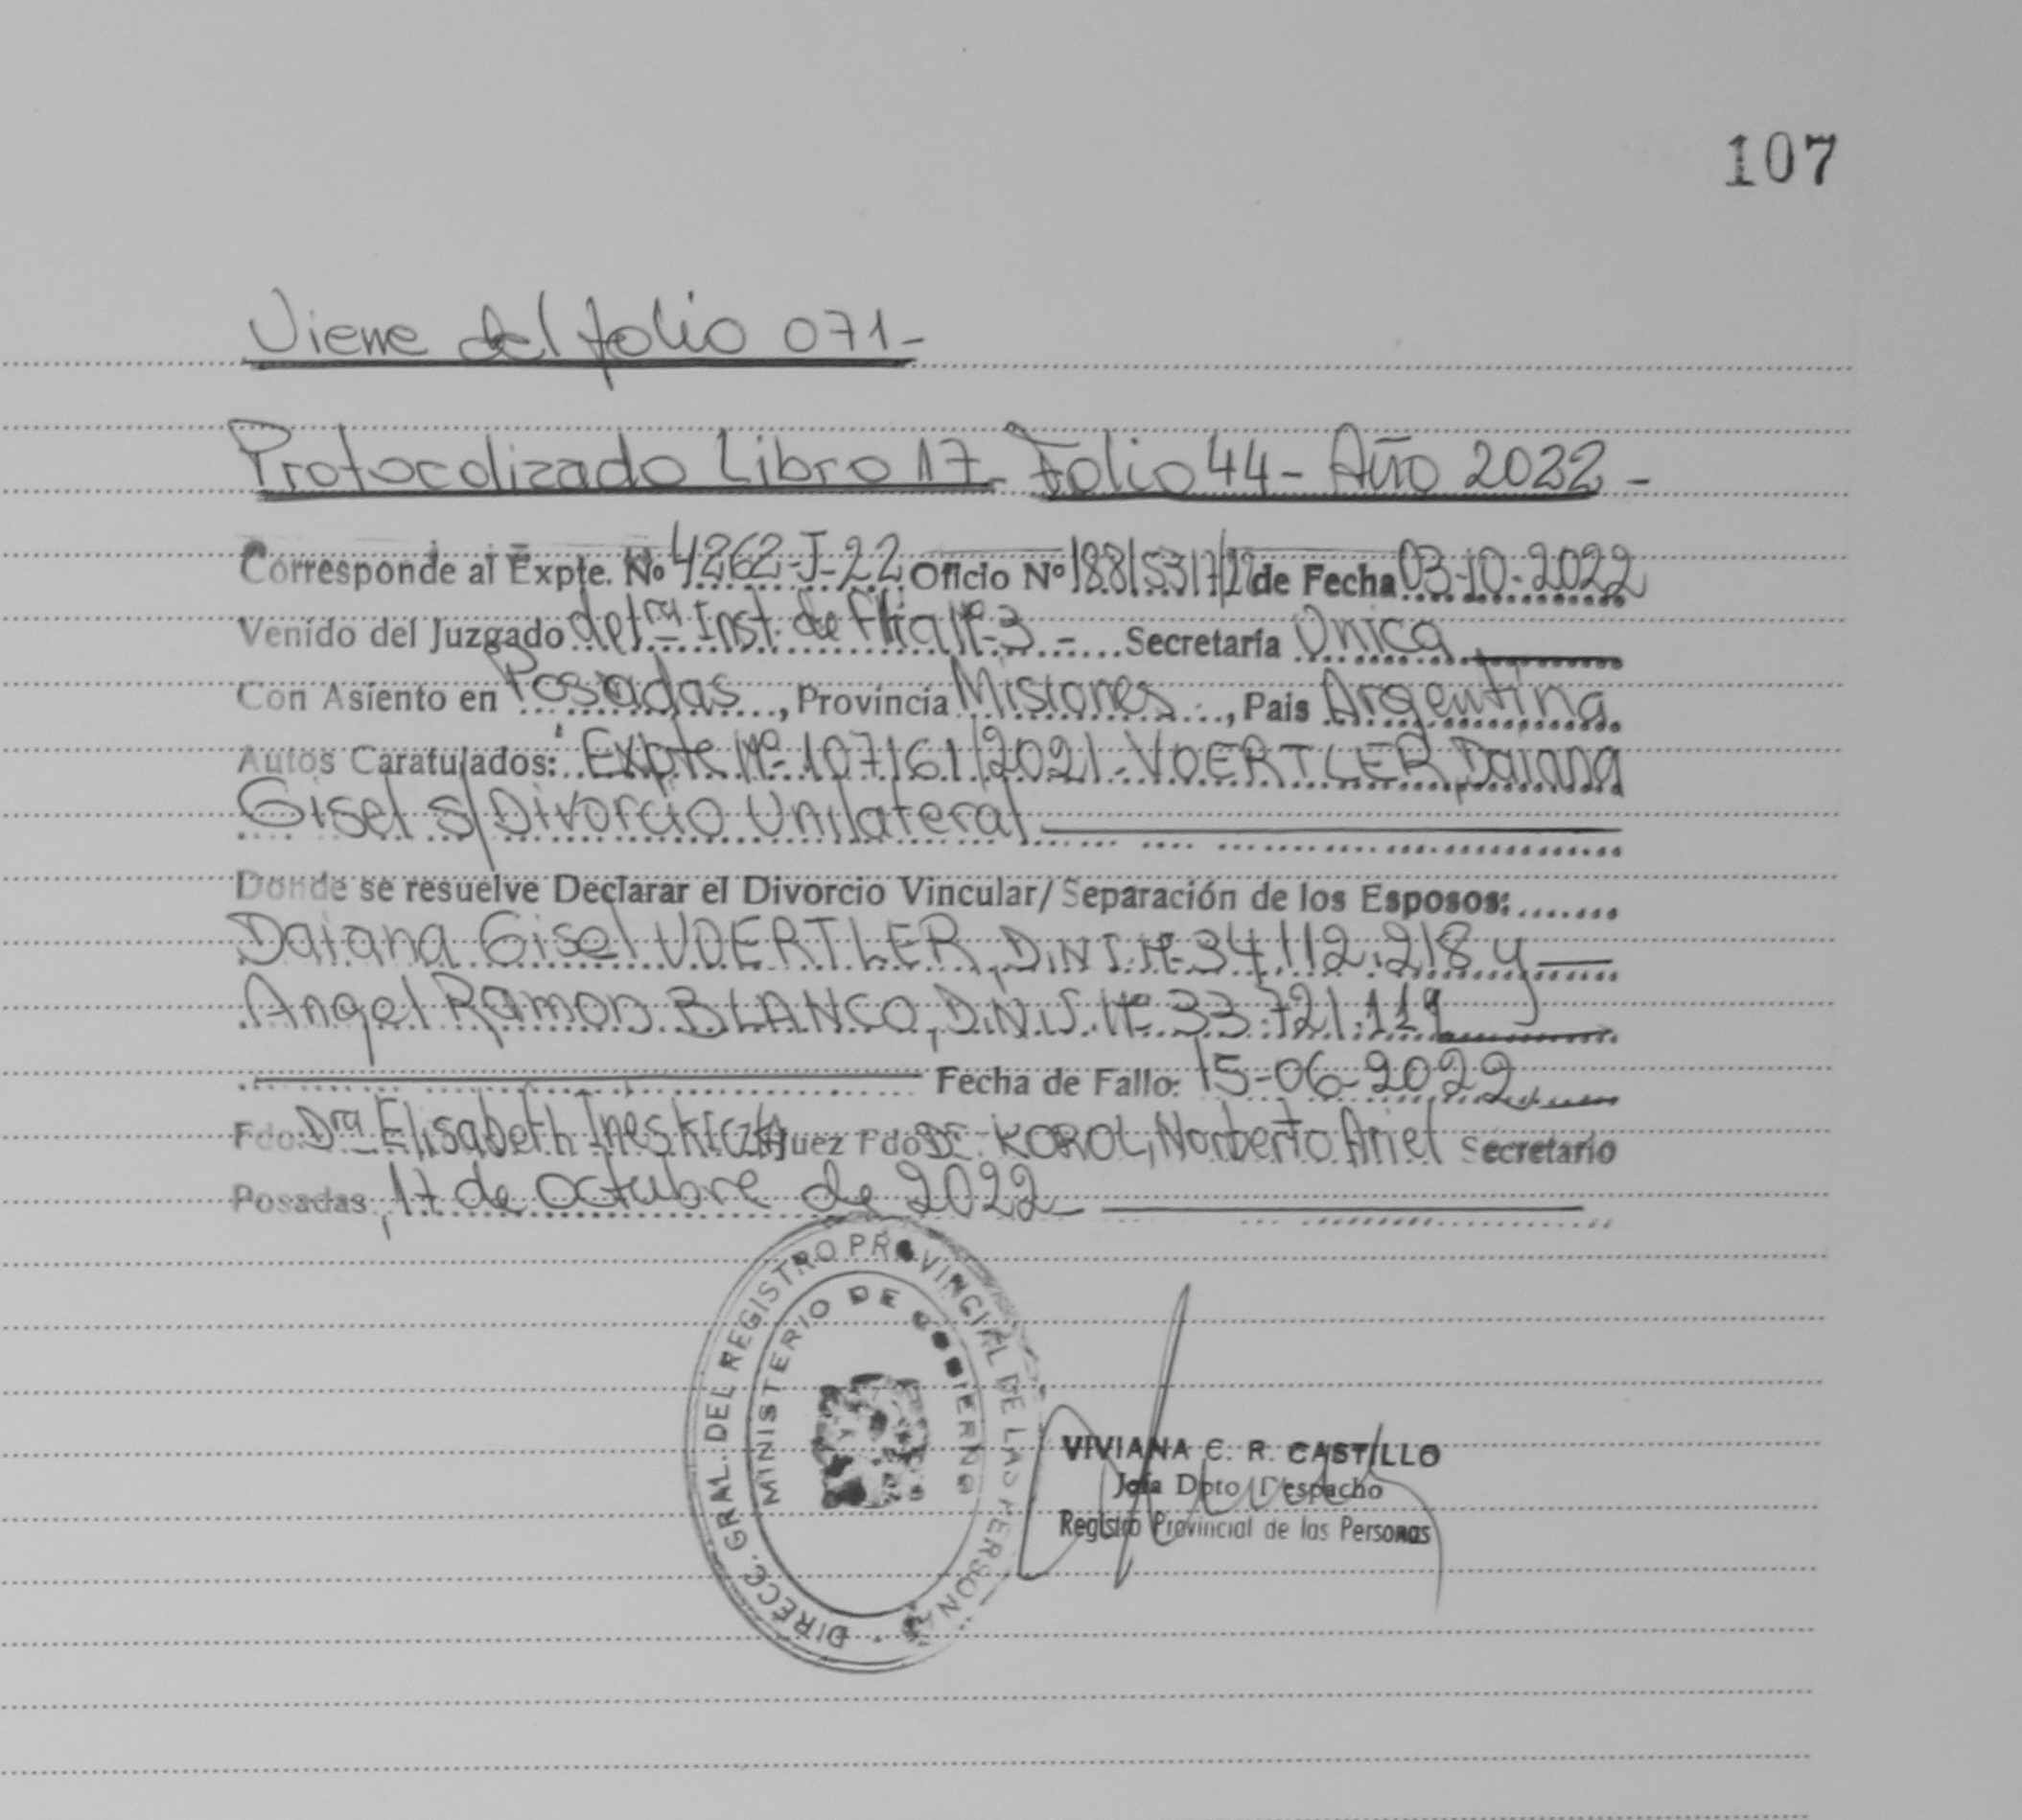 107
Viene del folio 071-
Protocolizado Libro 17- Folio 44- Año 2022-
Corresponde al Expte. Nº 4262-J-22 Oficio Nº 188/5317/22 de Fecha 03-10-2022
Venido del Juzgado de 1ra Inst. de Flia Nº 3 - Secretaría Única
Con Asiento en Posadas, Provincia Misiones, Pais Argentina
Autos Caratulados: Expte Nº 107161/2021-VOERTLER Daiana
Gisel s/Divorcio Unilateral
Donde se resuelve Declarar el Divorcio Vincular/Separación de los Esposos:
Daiana Gisel VOERTLER, D.N.I. Nº 34.112.218 y
Angel Ramon BLANCO, D.N.I. Nº 33.721.119
Fecha de Fallo: 15-06-2022
Fdo: Dra Elisabeth Ines Juez Fdo Dr. KOROL, Norberto Ariel Secretario
Posadas, 17 de octubre de 2022
DIRECC. GRAL. DEL REGISTRO PROVINCIAL DE LAS PERSONAS
MINISTERIO DE GOBIERNO
VIVIANA C. R. CASTILLO
Jefa Dpto Despacho
Registro Provincial de las Personas